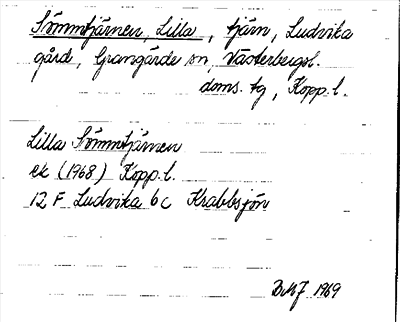 Sömmtjärnen, Lilla, tjärn, Ludvika
gård, Grangärde sn, Västerbergsl.
doms. tg, Kopp. l.
Lilla Sömmtjärnen
ek (1968) Kopp. l.
12 F Ludvika 6 c Krabbsjön
1969